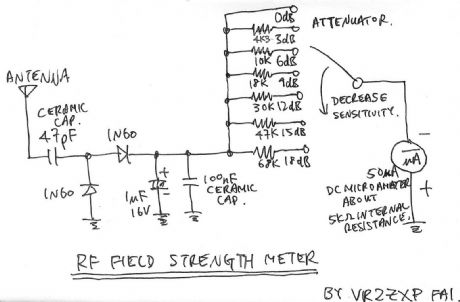 0dB
ATTENUATOR.
4K3 3dB
10K 6dB
18K 9dB
30K 12dB
47K 15dB
68K 18dB
DECREASE
SENSITIVITY.
ANTENNA
CERAMIC
CAP.
47pF
1N60
1N60
+
1µF
16V
100nF
CERAMIC
CAP.
-
uA
+
50uA
DC MICROAMMETER
ABOUT
5KΩ INTERNAL
RESISTANCE.
RF FIELD STRENGTH METER
BY VR2ZXP FAI.